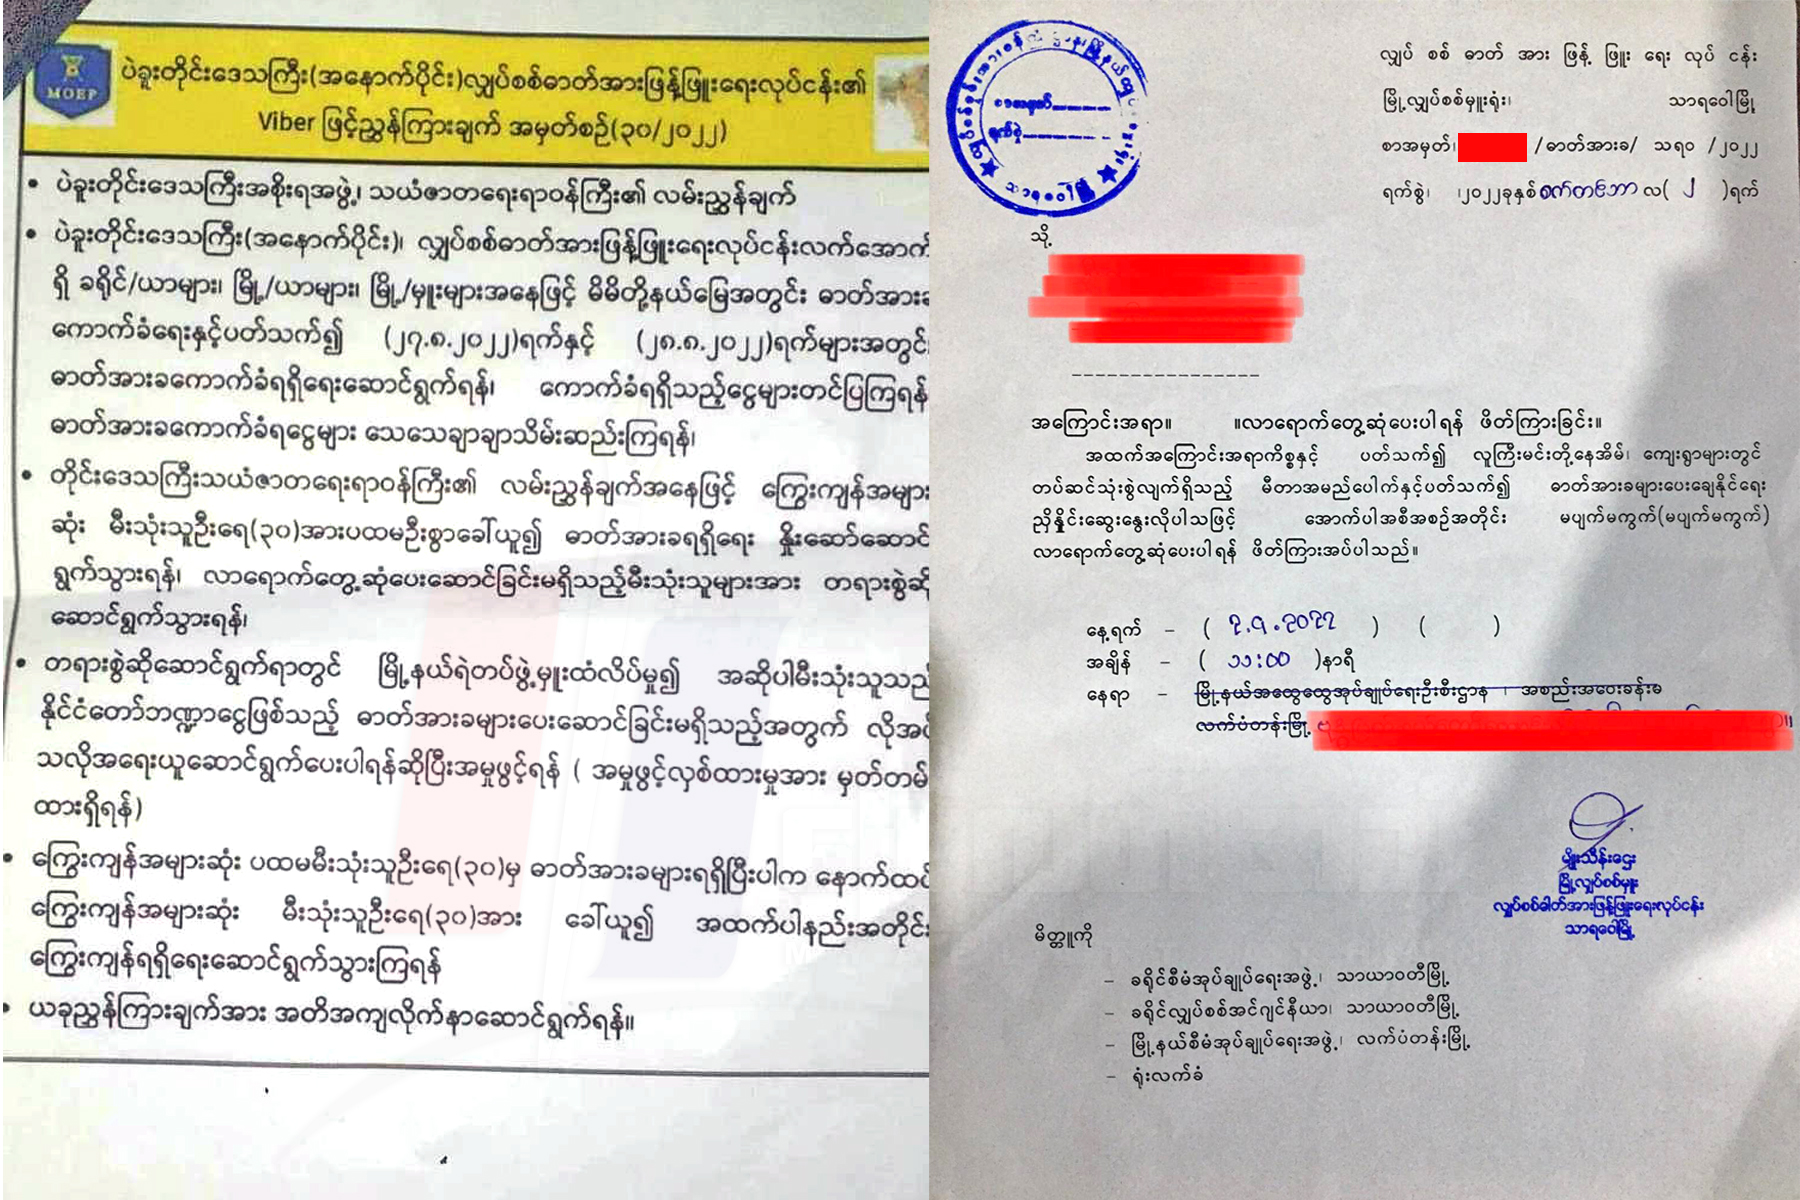 MOEP
ပဲခူးတိုင်းဒေသကြီး(အနောက်ပိုင်း)လျှပ်စစ်ဓာတ်အားဖြန့်ဖြူးရေးလုပ်ငန်း၏
Viber ဖြင့်ညွှန်ကြားချက် အမှတ်စဉ်(၃၀/၂၀၂၂)
• ပဲခူးတိုင်းဒေသကြီးအစိုးရအဖွဲ့၊ သယံဇာတရေးရာဝန်ကြီး၏ လမ်းညွှန်ချက်
• ပဲခူးတိုင်းဒေသကြီး(အနောက်ပိုင်း)၊ လျှပ်စစ်ဓာတ်အားဖြန့်ဖြူးရေးလုပ်ငန်းလက်အောက်
ရှိ ခရိုင်/ယာများ၊ မြို့/ယာများ၊ မြို့/မှူးများအနေဖြင့် မိမိတို့နယ်မြေအတွင်း ဓာတ်အားခ
ကောက်ခံရေးနှင့်ပတ်သက်၍ (၂၇.၈.၂၀၂၂)ရက်နှင့် (၂၈.၈.၂၀၂၂)ရက်များအတွင်း
ဓာတ်အားခကောက်ခံရရှိရေးဆောင်ရွက်ရန်၊ ကောက်ခံရရှိသည့်ငွေများတင်ပြကြရန်
ဓာတ်အားခကောက်ခံရငွေများ သေသေချာချာသိမ်းဆည်းကြရန်၊
• တိုင်းဒေသကြီးသယံဇာတရေးရာဝန်ကြီး၏ လမ်းညွှန်ချက်အနေဖြင့် ကြွေးကျန်အများ
ဆုံး မီးသုံးသူဦးရေ(၃၀)အားပထမဦးစွာခေါ်ယူ၍ ဓာတ်အားခရရှိရေး နှိုးဆော်ဆောင်
ရွက်သွားရန်၊ လာရောက်တွေ့ဆုံပေးဆောင်ခြင်းမရှိသည့်မီးသုံးသူများအား တရားစွဲဆို
ဆောင်ရွက်သွားရန်၊
• တရားစွဲဆိုဆောင်ရွက်ရာတွင် မြို့နယ်ရဲတပ်ဖွဲ့မှူးထံလိပ်မူ၍ အဆိုပါမီးသုံးသူသည်
နိုင်ငံတော်ဘဏ္ဍာငွေဖြစ်သည့် ဓာတ်အားခများပေးဆောင်ခြင်းမရှိသည့်အတွက် လိုအပ်
သလိုအရေးယူဆောင်ရွက်ပေးပါရန်ဆိုပြီးအမှုဖွင့်ရန် ( အမှုဖွင့်လှစ်ထားမှုအား မှတ်တမ်း
ထားရှိရန်)
• ကြွေးကျန်အများဆုံး ပထမမီးသုံးသူဦးရေ(၃၀)မှ ဓာတ်အားခများရရှိပြီးပါက နောက်ထပ်
ကြွေးကျန်အများဆုံး မီးသုံးသူဦးရေ(၃၀)အား ခေါ်ယူ၍ အထက်ပါနည်းအတိုင်း
ကြွေးကျန်ရရှိရေးဆောင်ရွက်သွားကြရန်
• ယခုညွှန်ကြားချက်အား အတိအကျလိုက်နာဆောင်ရွက်ရန်။
စာအမှတ်
ရက်စွဲ
သာရဝေါမြို့
လျှပ် စစ် ဓာတ် အား ဖြန့် ဖြူး ရေး လုပ် ငန်း
မြို့လျှပ်စစ်မှူးရုံး၊ သာရဝေါမြို့
စာအမှတ်၊ /ဓာတ်အားခ/ သရဝ /၂၀၂၂
ရက်စွဲ၊ ၊၂၀၂၂ခုနှစ် စက်တင်ဘာ လ( ၂ )ရက်
သို့
----------------
အကြောင်းအရာ။ ။လာရောက်တွေ့ဆုံပေးပါရန် ဖိတ်ကြားခြင်း။
အထက်အကြောင်းအရာကိစ္စနှင့် ပတ်သက်၍ လူကြီးမင်းတို့နေအိမ်၊ ကျေးရွာများတွင်
တပ်ဆင်သုံးစွဲလျက်ရှိသည့် မီတာအမည်ပေါက်နှင့်ပတ်သက်၍ ဓာတ်အားခများပေးချေနိုင်ရေး
ညှိနှိုင်းဆွေးနွေးလိုပါသဖြင့် အောက်ပါအစီအစဉ်အတိုင်း မပျက်မကွက်(မပျက်မကွက်)
လာရောက်တွေ့ဆုံပေးပါရန် ဖိတ်ကြားအပ်ပါသည်။
နေ့ရက် – ( ၇.၉.၂၀၂၂ ) ( )
အချိန် – ( ၁၁:၀၀ )နာရီ
နေရာ – မြို့နယ်အထွေထွေအုပ်ချုပ်ရေးဦးစီးဌာန ၊ အစည်းအဝေးခန်းမ
လက်ပံတန်းမြို့
မျိုးသိန်းဌေး
မြို့လျှပ်စစ်မှူး
လျှပ်စစ်ဓါတ်အားဖြန့်ဖြူးရေးလုပ်ငန်း
သာရဝေါမြို့
မိတ္တူကို
– ခရိုင်စီမံအုပ်ချုပ်ရေးအဖွဲ့၊ သာယာဝတီမြို့
– ခရိုင်လျှပ်စစ်အင်ဂျင်နီယာ၊ သာယာဝတီမြို့
– မြို့နယ်စီမံအုပ်ချုပ်ရေးအဖွဲ့၊ လက်ပံတန်းမြို့
– ရုံးလက်ခံ